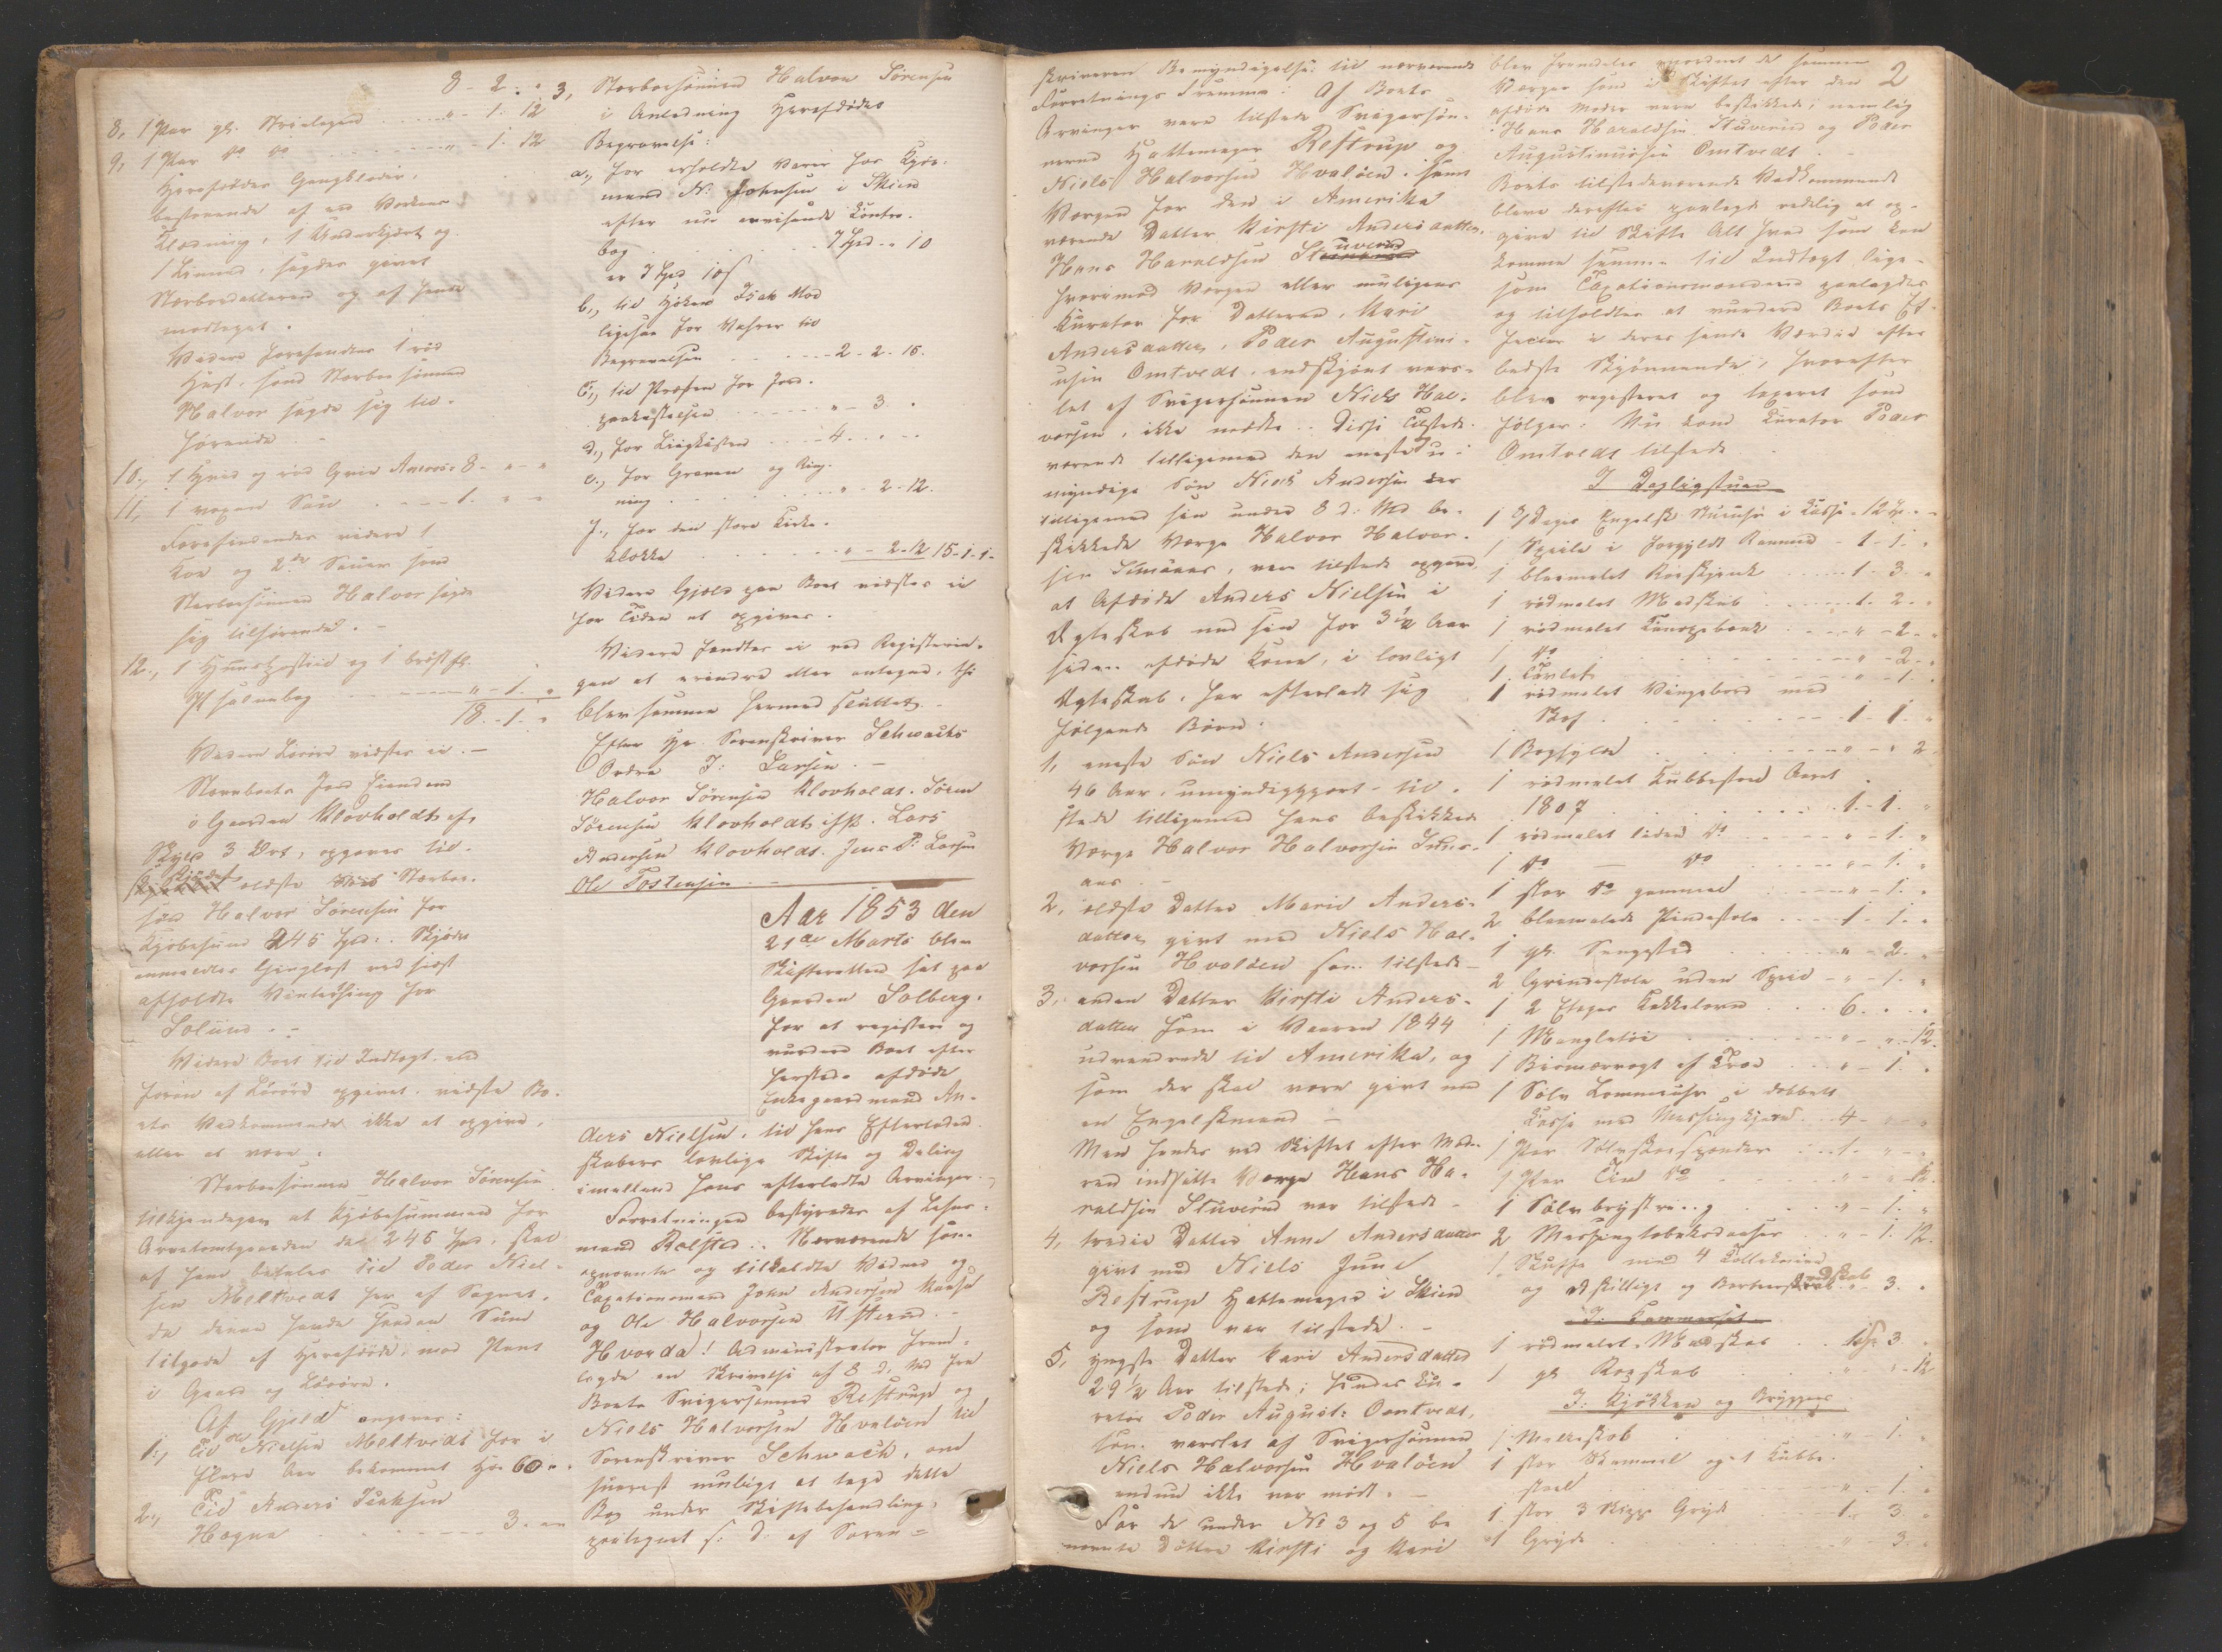 8 - 2 . "
8, 1 Par gl. Strilagen . . . . " - 1. 12
9, 1 Par do do . . . . " - 1. 12
Hersdødes Gangklæder,
bestaaende af en Vadmels
Klædning, 1 Underskjort og
1 Linned, sagdes givet
Stærbodatteren og af hende
modtaget.
Videre forefandtes 1 rød
Hest, som Stærbosønnen
Halvor sagde sig til-
hørende. -
10., 1 hvid og rød Qvie Ansaaes 8 - " - "
11, 1 voxen Sau . . . 1. " "
Forefindendes videre 1
Koe og 2de Sauer som
Stærbosønnen Halvor sagde
sig tilhørende. -
12., 1 Huuspostil og 1 brøstf.
Psalmebog . . . " - 1. "
18. - 1. "
Videre Løsøre vidstes ei. -
Stærvboets Jord Eiendom
i Gaarden Klovholdt af
Skyld 3 Ort, opgaves til-
skjødet ældste Stærbo-
søn Halvor Sørensen for
Kjøbesum 245 Spd. Skjødet
anmeldtes Thinglæst ved sidst
afholdte Vinterthing for
Solum. -
Videre Boet til Indtægt end
foran af Løsøre opgivet, vidste Bo-
ets Vedkommende ikke at opgive,
eller at være.
Stærbosønnen Halvor Sørensen
tilkjendegav at Kjøbesummen for
Arvetomtgaarden de 245 Spd. skal
af ham betales til Peder Niel-
sen Meltvedt her af Sognet,
da denne havde saadan Sum
tilgode af Hersdøde, mod Pant
i Gaard og Løsøre.
Af Gjeld angaves:
1., Til Ole Nielsen Meltvedt for i
flere Aar bekommet Høe 60 "
2., Til Anders Isaksen
Hogne . . . . 3. "
3, Stærbosønnen Halvor Sørensen
i Anledning Hersdødes
Begravelse:
a., for erholdte Varer hos Kjøb-
mand N. Johnsen i Skien
efter nu anvisende Contra-
bog . . . . 7 Spd - " 10
er 7 Spd 10 s
b., til Høker Isak Moe
ligesaa for Vahrer til
Begravelsen . . . . 2 - 2 - 16.
c., til Præsten for Jord-
paakastelsen . . . . " - 3 "
d., for Liigkisten . . . 4. " "
e., for Graven og Ring-
ning . . . . " - 2 - 12.
f., for den store Kirke-
klokke . . . . " - 2 - 12 15 - 1 - 1 -
Videre Gjæld paa Boet vidstes ei
for Tiden at opgives.
Videre fandtes ei ved Registerin-
gen at erindre eller antegne, thi
blev samme hermed sluttet. -
Efter Hr. Sorenskriver Schwachs
Ordre J: Larsen. -
Halvor Sørensen Klovholdt. Søren
Sørensen Klovholdt ifP. Lars
Andersen Klovholdt. Jens P. Larsen
Ole Tostensen -
Aar 1853 den
21de Marts blev
Skifteretten sat paa
Gaarden Solberg,
for at registere og
vurdere Boet efter
hersteds afdøde
Enkegaardmand An-
ders Nielsen, til hans Efterladen-
skabers lovlige Skifte og Deling
imellem hans efterladte Arvinger. -
Forretningen bestyredes af Lehns-
mand Rolsted. Nærværende som
opnævnte og tilkaldte Vidner og
Taxationsmænd John Andersen Aarhus
og Ole Halvorsen Ufsterud. -
Hvorda! Administrator frem-
lagde en Skrivelse af 8 d. Md. fra
Boets Svigersønner Restrup og
Niels Halvorsen Hvaløen til
Sorenskriver Schwach, om
snarest muligt at tage dette
Boe under Skiftebehandling,
paategnet s. D. af Soren-
skriveren Bemyndigelse til nærværende
Forretnings Fremme: Af Boets
Arvinger vare tilstede Svigersøn-
nerne Hattemager Restrup og
Niels Halvorsen Hvaløen, samt
Værgen for den i Amerika
værende Datter Kirsti Andersdatter,
Hans Haraldsen Stuverud
hvorimod Værgen eller muligens
Kurator for Datteren, Kari
Andersdatter, Peder Augustinu-
usen Omtvedt, endskjønt vars-
let af Svigersønnen Niels Hal-
vorsen, ikke mødte. Disse Tilstede-
værende tilligemed den eneste u-
myndige Søn Niels Andersen der
tilligemed sin under 8 d: Md be-
skikkede Værge Halvor Halvor-
sen Limaaes, var tilstede opgave
at Afdøde Anders Nielsen i
Ægteskab med sin for 3 1/2 Aar
siden afdøde Kone, i lovligt
Ægteskab, har efterladt sig
følgende Børn:
1, eneste Søn Niels Andersen
46 Aar, umyndiggjort - til-
stede tilligemed hans beskikkede
Værge Halvor Halvorsen Lima-
aes. -
2, ældste Datter Marie Anders-
datter, givt med Niels Hal-
vorsen Hvaløen som tilstede -
3, anden Datter Kirsti Anders-
datter som i Vaaren 1844
udvandrede til Amerika, og
som der skal være givt med
en Engelskmand -
Men hendes ved Skiftet efter Mode-
ren indsatte Værge Hans Ha-
raldsen Stuverud var tilstede -
4, tredie Datter Anne Andersdatter
givt med Niels Juul
Restrup Hattemager i Skien
og som var tilstede. -
5, yngste Datter Kari Andersdatter
29 1/2 Aar tilstede; hendes Ku-
rator Peder August: Omtvedt,
som varslet af Svigersønnen
Niels Halvorsen Hvaløen
endnu ikke var mødt. -
For de under No 3 og 5 be
nævnte Døttre Kirsti og Kari
2
blev fremdeles opnævnt de samme
Værger som i Skiftet efter den
afdøde Moder vare beskikkede, nemlig
Hans Haraldsen Stuverud og Peder
Augustinussen Omtvedt. -
Boets tilstedeværende Vedkommende
bleve derefter paalagde redelig at op-
give til Skifte Alt hvad som kan
komme samme til Indtægt lige-
som Taxationsmændene paalagdes
og tilholdtes at vurdere Boets Ef-
fecter i deres sande Værdie efter
bedste Skjønnende, hvorefter
blev registeret og taxeret som
følger: Nu kom Kurator Peder
Omtvedt tilstede
I Dagligstuen
1 8 Dages Engelsk Stueuhr i Kasse - 12 " "
1 Speile i forgyldt Ramme - 1 - 1. "
1 blaamalet Roeskjenk . . . 1 - 3. "
1 rødmalet Madskab . . . 1. 2. "
1 rødmalet Kanapebænk . . . " - 2 - "
1 do . . . . " - 2 - "
1 Tavlet . . . . " - 1. "
1 rødmalet Vingebord med
Skuf . . . . 1 - 1. "
1 Boghylde . . . . " - " 2
1 rødmalet Kubbestoel Aaret
1807 . . . . 1 - 1. "
1 rødmalet liden do . . . " - 1. "
1 do - do . . . " - 1. "
1 stor do gammel . . . " - 1. "
2 blaamalede Pindestole . . . 1 - 1. "
1 gl. Sengested . . . " - 2 - "
2 Grindestole uden Speil - " - 1. "
1 2 Etages Kakkelovn . . . 6. " "
1 Mangletøi . . . " - " - 12.
1 Bismervægt af Træ . . . " - 1. "
1 Sølv Lommeuhr i dobbelt
Kasse med Messingkjæde . . 4 - " "
1 Par Sølvskoespænder . . 1. " "
1 Par Tin do . . . " - " - 12.
1 Sølv brystring . . . " - 1. "
2 Messingtobaksdaaser . . " - 1. 12.
1 Skuffe med 4 Tolleknive
og Adskilligt og Barbeerredskab . " 3. "
I: Kammerset
1 rødmalet Madskab . . 1 Sp 3.
1 gl Roeskab . . . " - " - 12
I: Kjøkken og Bryggers
1 Melkeskab . . . " - 1. "
1 stor Skammel og 1 Kubbe-
stoel . . . " - 1. "
1 stor 3 Skjepp Gryde . . 1. 3 "
1 Gryde . . . " - 3. "